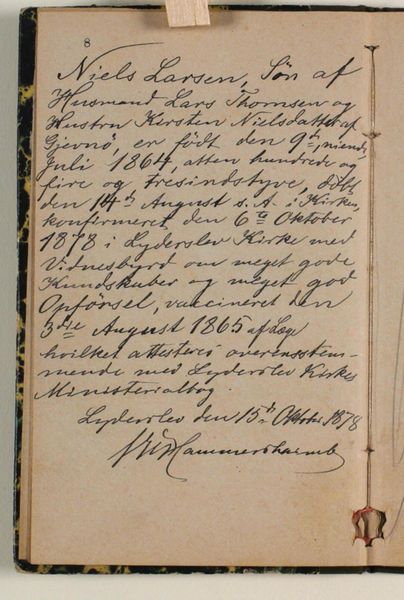 8
Niels Larsen, Søn af
Husmand Lars Thomsen og
Hustru Kirsten Nielsdatter af
Gjevnö, er født den 9de, niende,
Juli 1864, atten hundrede og
fire og tresindstyve, döbt
den 14de August s. A. i Kirken,
konfirmeret den 6te Oktober
1878 i Lyderslev Kirke med
Vidnesbyrd om meget gode
Kundskaber og meget god
Opförsel, vaccineret den
3die August 1865 af Læge
hvilket attesteres overensstem-
mende med Lyderslev Kirkes
Ministerialbog.
Lyderslev den 15de Oktober 1878
Hammershaimb